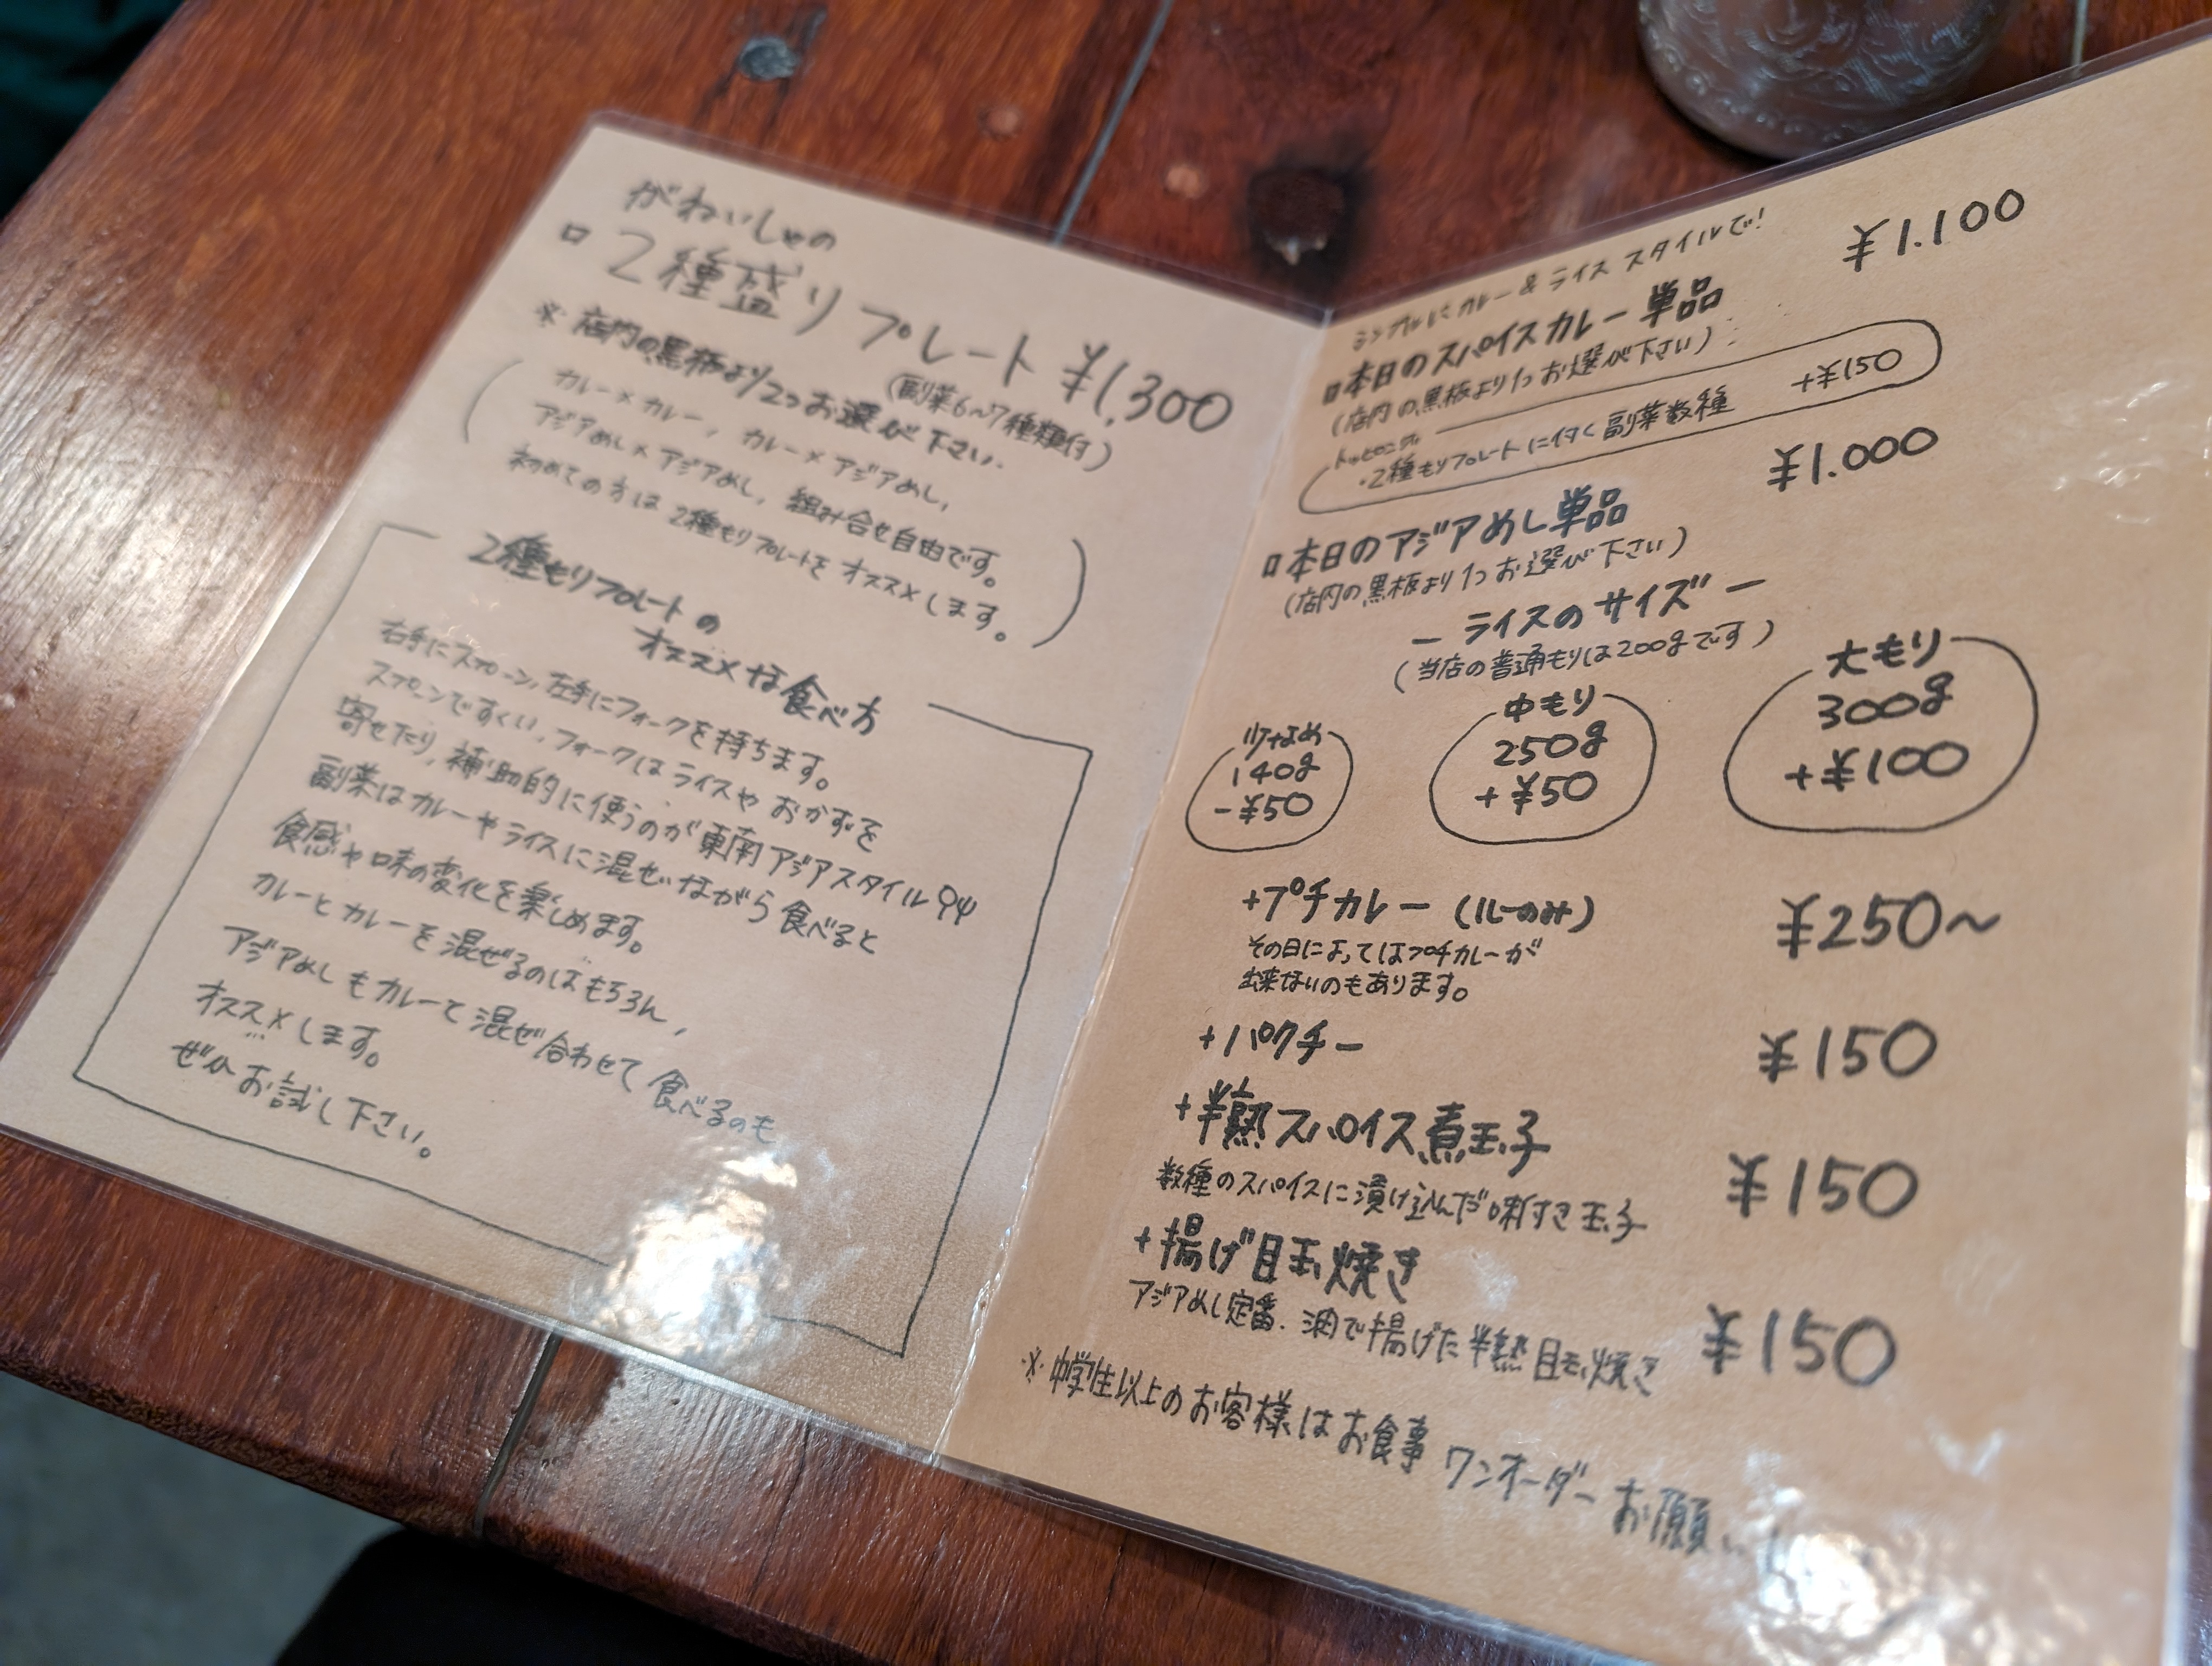 がねいしゃの
□ 2種盛りプレート ¥1,300
(副菜6〜7種類付)
※店内の黒板より2つお選び下さい.
カレー×カレー, カレー×アジアめし,
アジアめし×アジアめし, 組み合せ自由です。
初めての方は2種もりプレートをオススメします。
2種もりプレートの
オススメな食べ方
右手にスプーン, 左手にフォークを持ちます。
スプーンですくい, フォークはライスやおかずを
寄せたり, 補助的に使うのが東南アジアスタイル
副菜はカレーやライスに混ぜながら食べると
食感や味の変化を楽しめます。
カレーとカレーを混ぜるのはもちろん,
アジアめしもカレーと混ぜ合わせて食べるのも
オススメします。
ぜひお試し下さい。
シンプルにカレー&ライススタイルで!
□本日のスパイスカレー単品 ¥1.100
(店内の黒板より1つお選び下さい)
トッピング
・2種もりプレートに付く副菜数種 +¥150
□本日のアジアめし単品 ¥1.000
(店内の黒板より1つお選び下さい)
ー ライスのサイズ ー
(当店の普通もりは200gです)
少なめ
140g
-¥50
中もり
250g
+¥50
大もり
300g
+¥100
+プチカレー (ルーのみ) ¥250〜
その日によってはプチカレーが
出来ないのもあります。
+パクチー ¥150
+半熟スパイス煮玉子 ¥150
数種のスパイスに漬け込んだ味付き玉子
+揚げ目玉焼き ¥150
アジアめし定番. 油で揚げた半熟目玉焼き
※中学生以上のお客様はお食事ワンオーダーお願い